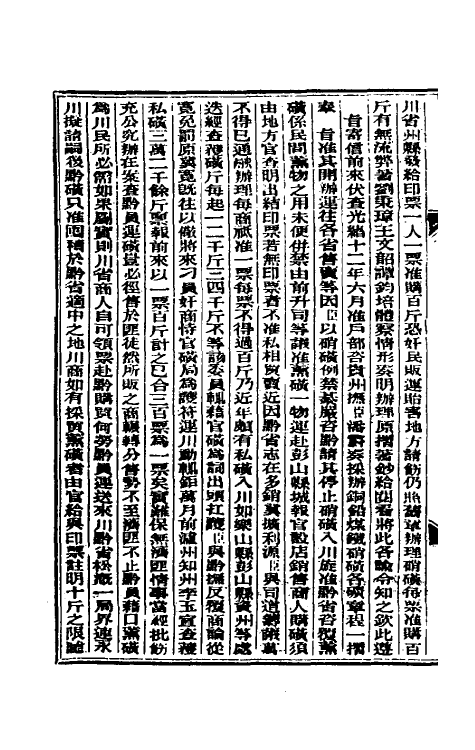 川省州縣發給印票一人一票准購百斤恐奸民販運貽害地方請飭仍照舊章辦理硝磺每票准購百
斤有無流弊著劉秉璋王文韶譚鈞培體察情形妥明辦理原摺著鈔給閱看將此各諭令知之欽此遵
旨寄信前來伏查光緒十二年六月准戶部咨貴州撫臣潘霨奏採辦銅鉛煤鐵硝磺各礦章程一摺
奉 旨准其開辦運往各省售賣等因臣以硝磺例禁綦嚴咨黔請其停止硝磺入川旋准黔省咨覆薰
磺係民間薰物之用未便併禁由前升司等議准薰磺一物運赴彭山縣城報官設店銷售商人購磺須
由地方官查明出結印票若無印票者不准私相買賣近因黔省志在多銷冀擴利源臣與司道籌議萬
不得已通融辦理每商祇准一票每票不得過百斤乃近年頗有私磺入川如樂山縣彭山縣資州等處
迭經查獲磺斤每起一二千斤三四千斤不等該委員輒藉官磺為詞出頭扛護臣與黔撫反覆商論從
寬免罰原冀寬既往以儆將來刁員奸商恃官磺局為護符連川動輒鉅萬月前瀘州知州李玉宣查獲
私磺三萬二千餘斤稟報前來以一票百斤計之已合三百票為一票矣實難保無濟匪情事當經批飭
充公究辦在案查黔員運磺豈必徑售於匪徒然所販之商輾轉分售勢不至濟匪不止黔員藉口薰磺
為川民所必需如果屬實則川省商人自可領票赴黔購買何勞黔員運送來川黔省松坎一局界連永
川擬請嗣後黔磺只准囤積於黔省適中之地川商如有採買薰磺者由官給與印票註明十斤之限隨